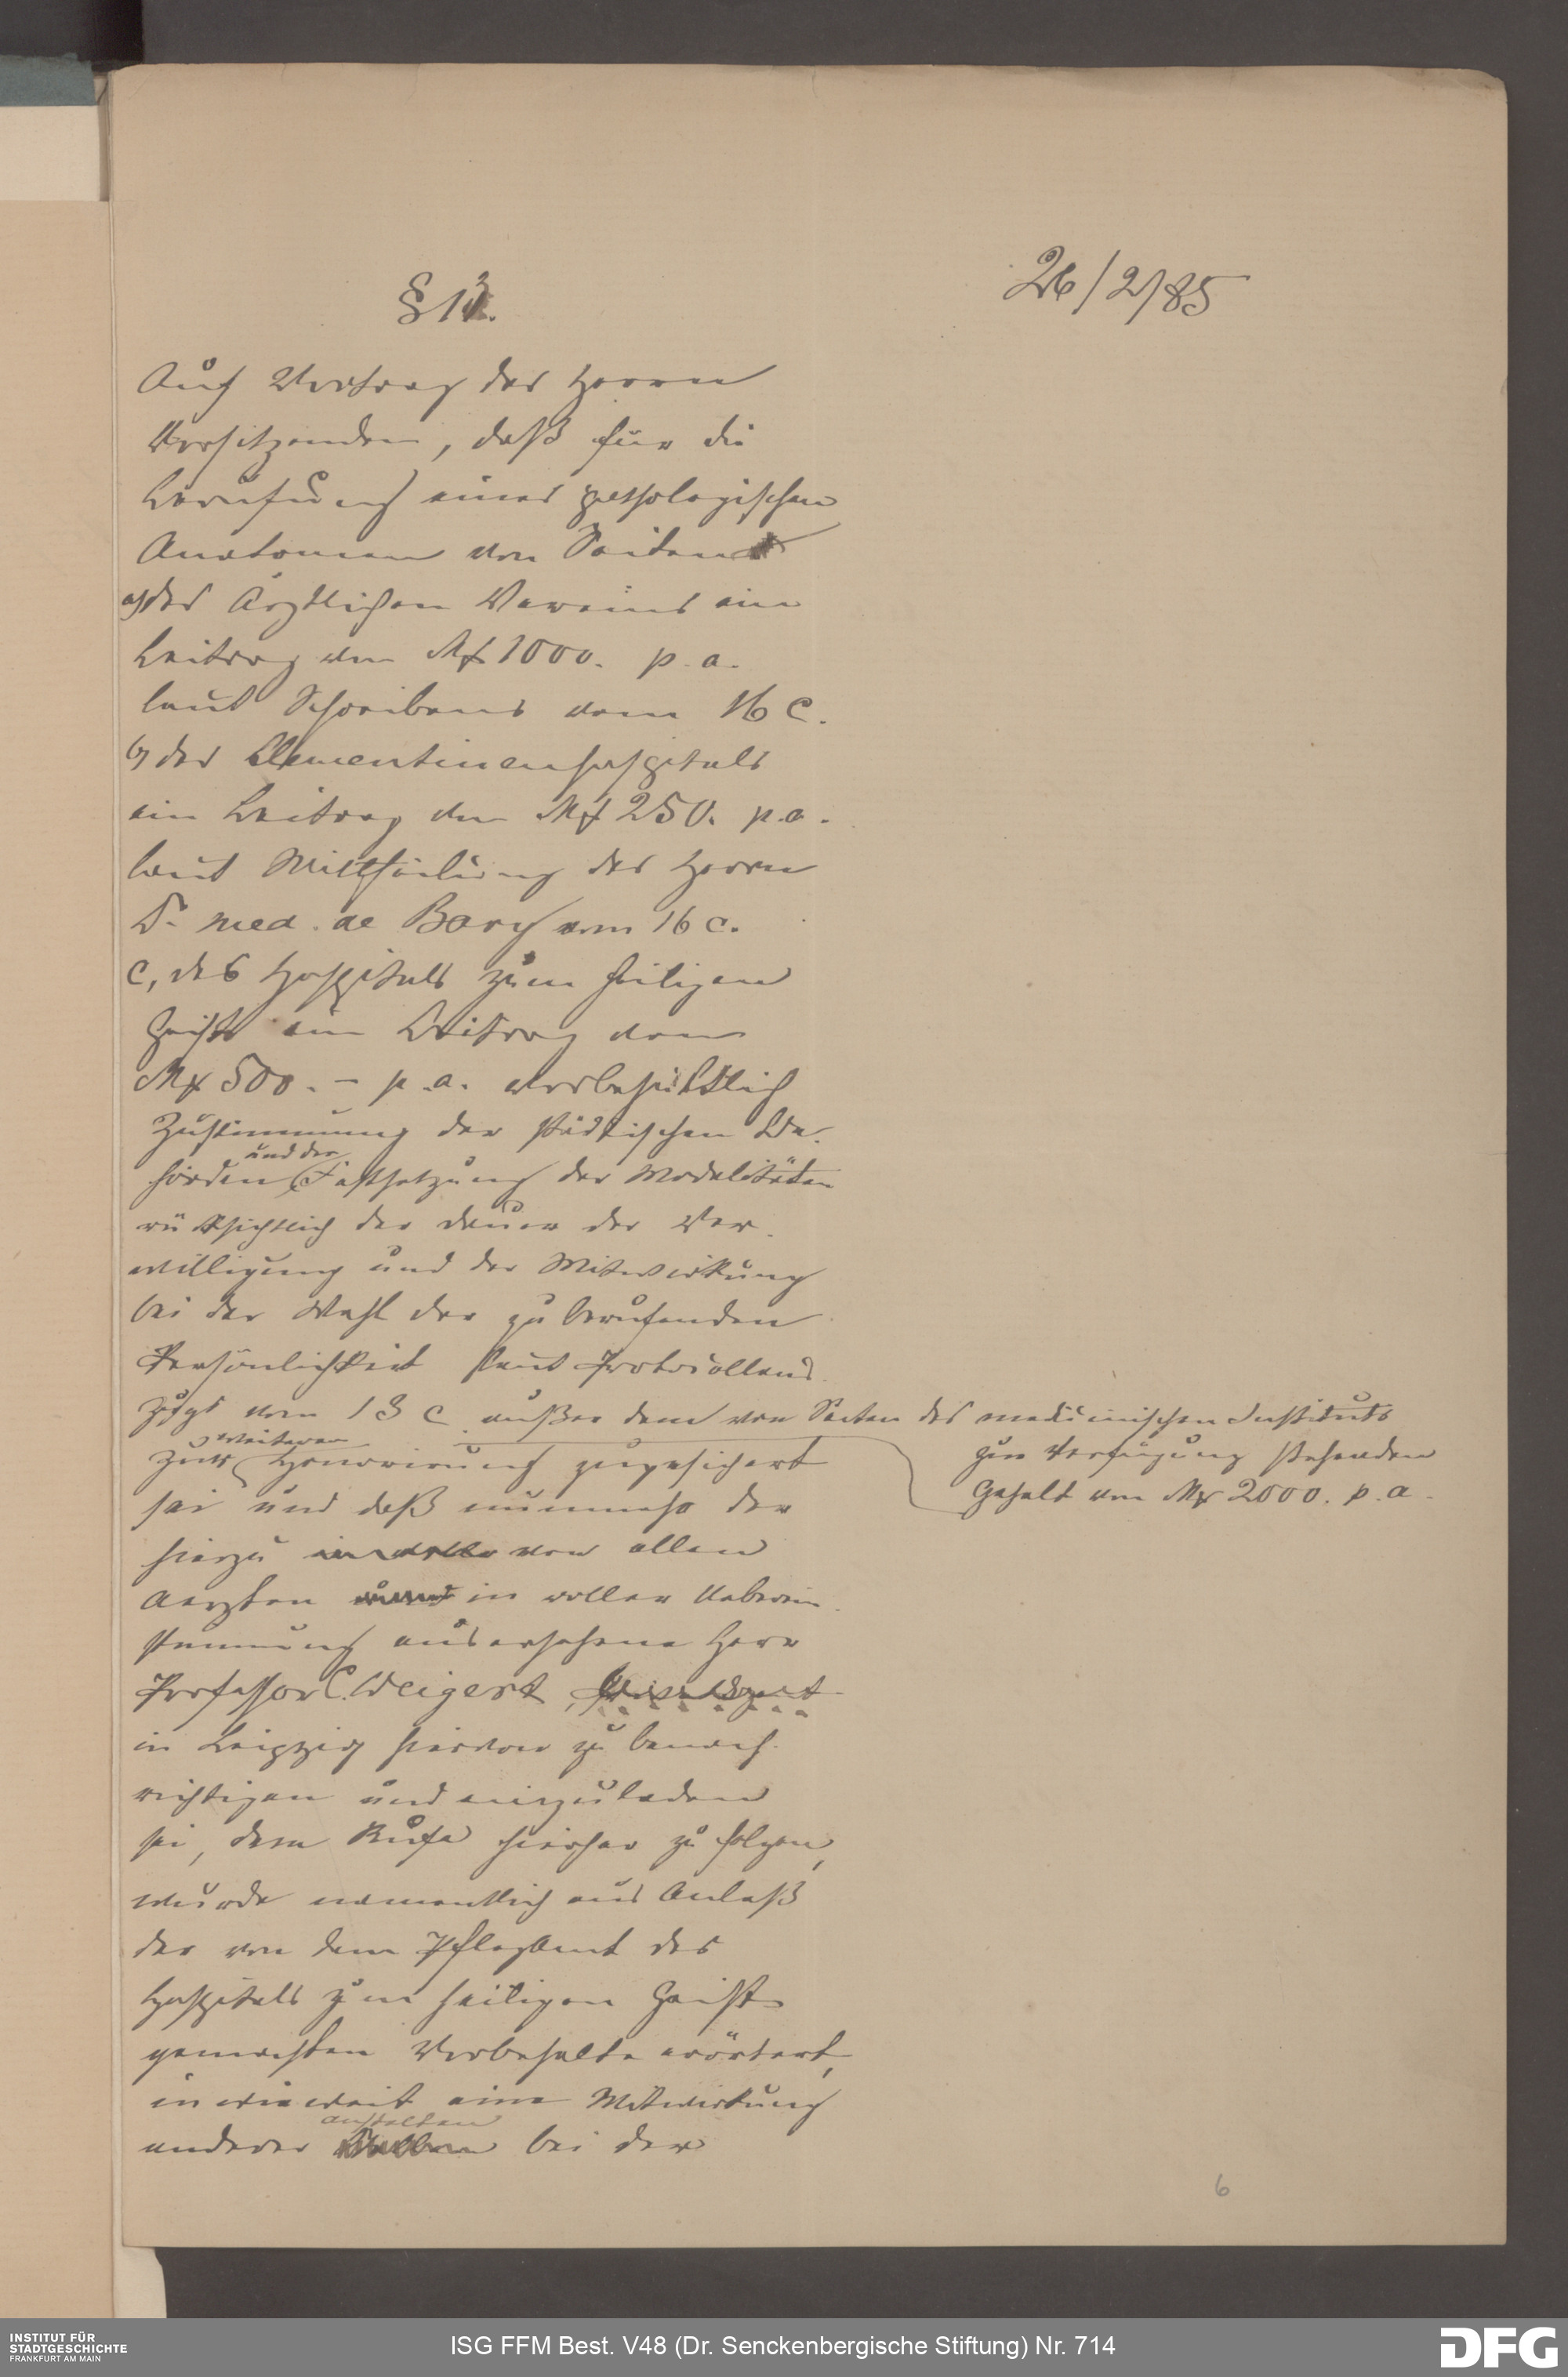 26/2/85
§ 13.
Auf Vortrag des Herrn
Vorsitzenden, daß für die
Berufung eines pathologischen
Anatomen von Seiten
a, des Ärztlichen Vereins ein
Beitrag von Mk 1000. p. a.
laut Schreibens vom 16 c.
b, des Clementinenhospitals
ein Beitrag von Mk 250. p. a.
laut Mittheilung des Herrn
Dr med. de Bary vom 16 c.
c, des Hospitals zum heiligen
Geist ein Beitrag von
Mk 500. – p. a. vorbehältlich
Zustimmung der städtischen Be-
und der
hörden Festsetzung der Modalitäten
rücksichtlich der Dauer der Ver-
willigung und der Mitwirkung
bei der Wahl der zu berufenden
Persönlichkeit laut Protocollaus-
zugs vom 13 c außer dem von Seiten des medicinischen Instituts
zur Verfügung stehenden
Gehalt von Mk 2000. p. a.
weiteren
zur Honorirung zugesichert
sei und daß nunmehr der
hierzu von allen
Aerzten in voller Ueberein-
stimmung ausersehene Herr
Professor C. Weigert,
in Leipzig hiervon zu benach-
richtigen und einzuladen
sei, dem Rufe hierher zu folgen,
wurde namentlich aus Anlaß
der von dem Pflegamt des
Hospitals zum heiligen Geist
gemachten Vorbehalte erörtert,
in wie weit eine Mitwirkung
anstalten
anderer bei der
6
INSTITUT FÜR
STADTGESCHICHTE
FRANKFURT AM MAIN
ISG FFM Best. V48 (Dr. Senckenbergische Stiftung) Nr. 714
DFG